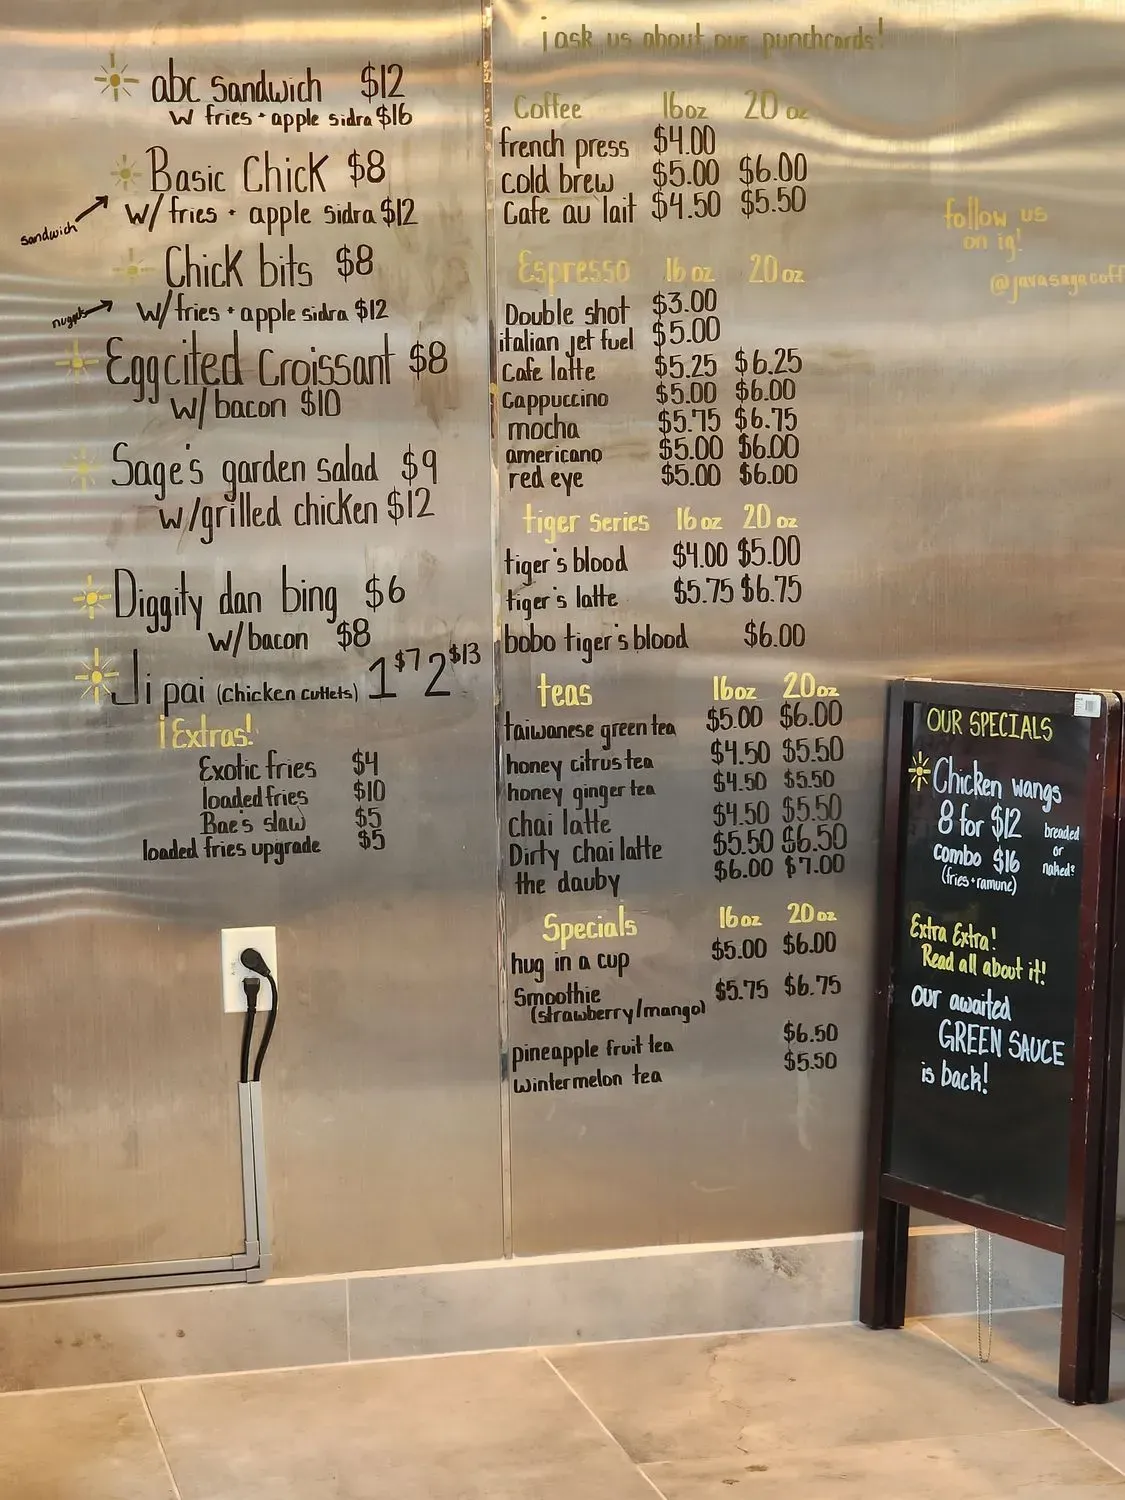 abc sandwich $12
w fries + apple sidra $16
Basic Chick $8
sandwich
w/ fries + apple sidra $12
Chick bits $8
nuggets
w/ fries + apple sidra $12
Eggcited Croissant $8
w/ bacon $10
Sage's garden salad $9
w/grilled chicken $12
Diggity dan bing $6
w/bacon $8
Ji pai (chicken cutlets) 1 $7 2 $13
¡Extras!
Exotic fries $4
loaded fries $10
Bae's slaw $5
loaded fries upgrade $5
¡ask us about our punchcards!
Coffee 16oz 20 oz
french press $4.00
cold brew $5.00 $6.00
Cafe au lait $4.50 $5.50
Espresso 16 oz 20 oz
Double shot $3.00
italian jet fuel $5.00
Cafe latte $5.25 $6.25
Cappuccino $5.00 $6.00
mocha $5.75 $6.75
americano $5.00 $6.00
red eye $5.00 $6.00
tiger series 16oz 20 oz
tiger's blood $4.00 $5.00
tiger's latte $5.75 $6.75
bobo tiger's blood $6.00
teas 16oz 20oz
taiwanese green tea $5.00 $6.00
honey citrus tea $4.50 $5.50
honey ginger tea $4.50 $5.50
chai latte $4.50 $5.50
Dirty chai latte $5.50 $6.50
the dauby $6.00 $7.00
Specials 16oz 20oz
hug in a cup $5.00 $6.00
Smoothie $5.75 $6.75
(strawberry/mango)
pineapple fruit tea $6.50
wintermelon tea $5.50
follow us
on ig!
@javasagacoff
OUR SPECIALS
Chicken wangs
8 for $12
combo $16
(fries + ramune)
breaded
or
naked?
Extra Extra!
Read all about it!
our awaited
GREEN SAUCE
is back!